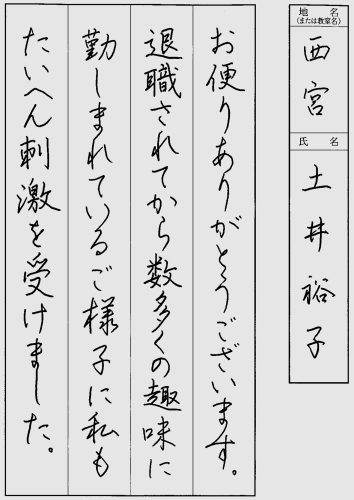 地名
(または教室名)
西宮
氏名
土井裕子
お便りありがとうございます。
退職されてから数多くの趣味に
勤しまれているご様子に私も
たいへん刺激を受けました。